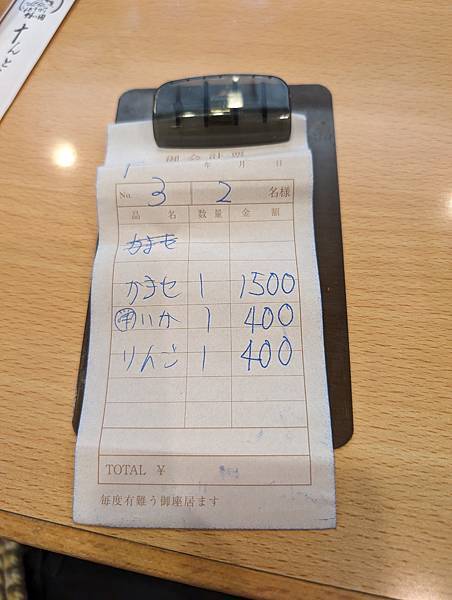 すんど
御会計票
年 月 日
No. 3 2 名様
品 名 数 量 金 額
かまセ
かまセ 1 1500
半いか 1 400
りんご 1 400
TOTAL ¥
毎度有難う御座居ます